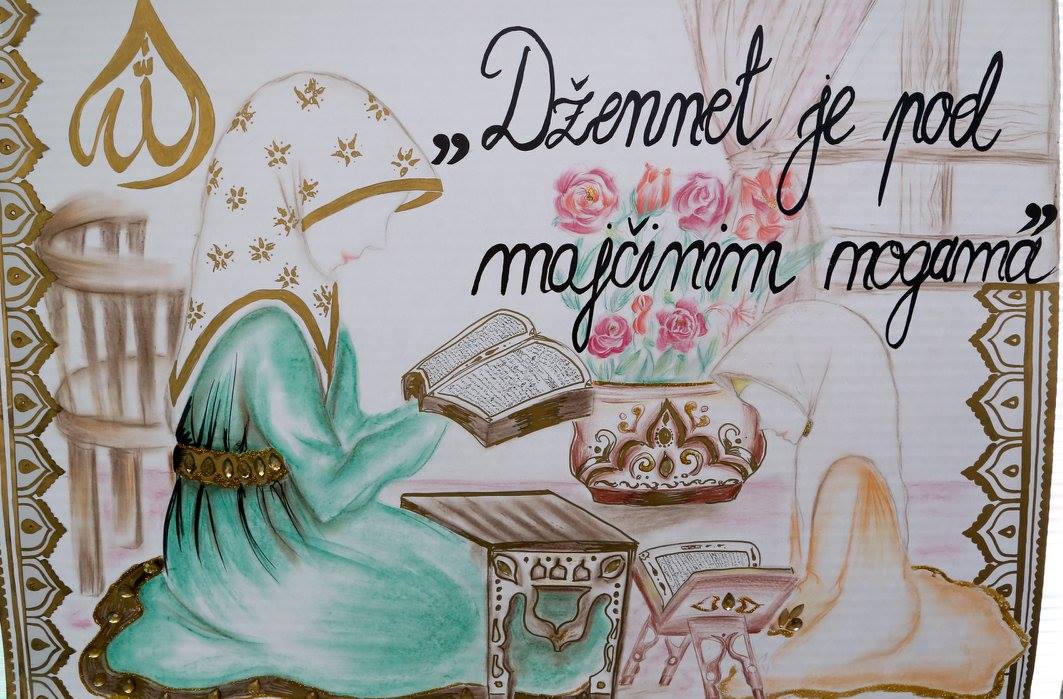 الله
„Džennet je pod
majčinim nogama”